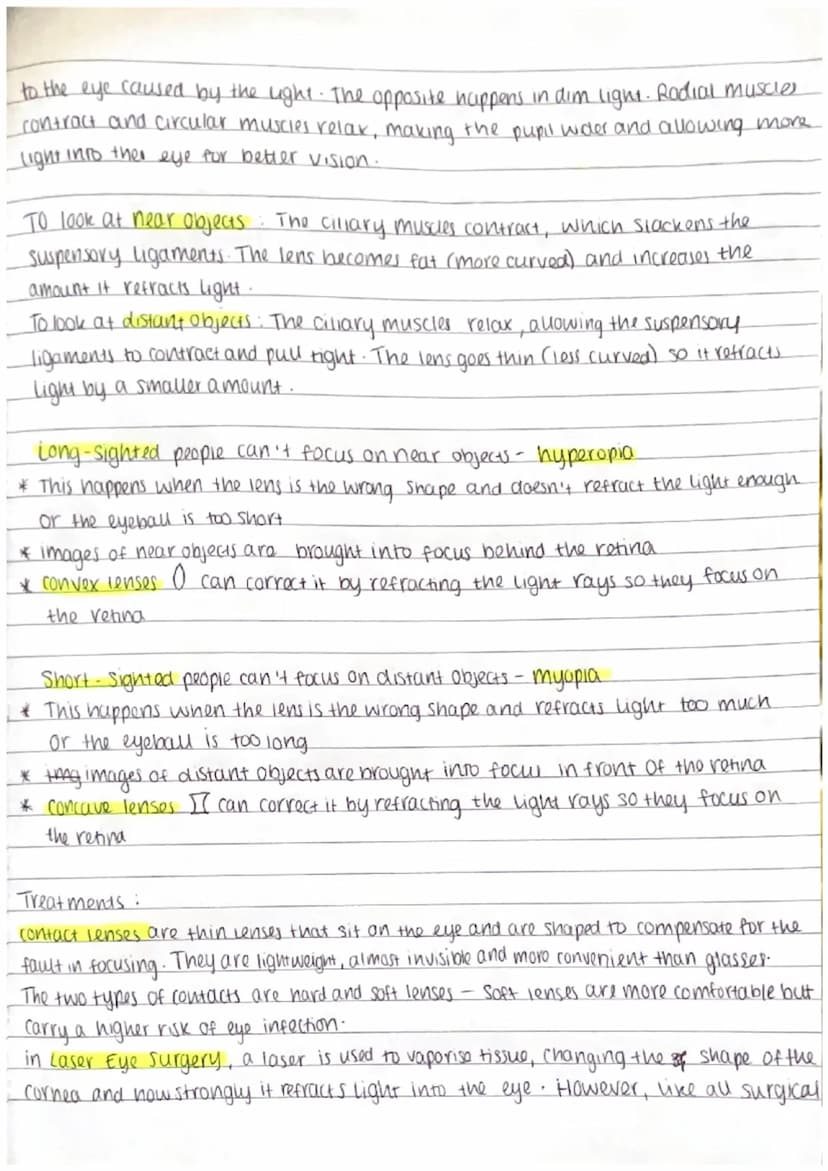 to the eye caused by the light. The opposite happens in dim light. Radial muscles
contract and circular muscles relax, making the pupil wider and allowing more
light into the eye for better vision.
To look at near objects : The ciliary muscles contract, which slackens the
suspensory ligaments. The lens becomes fat (more curved) and increases the
amount it refracts light.
To look at distant objects : The ciliary muscles relax, allowing the suspensory
ligaments to contract and pull tight. The lens goes thin (less curved) so it refracts
light by a smaller amount.
Long-sighted people can't focus on near objects - hyperopia
* This happens when the lens is the wrong shape and doesn't refract the light enough
or the eyeball is too short
* images of near objects are brought into focus behind the retina
* convex lenses can correct it by refracting the light rays so they focus on
the retina
Short-sighted people can't focus on distant objects - myopia
* This happens when the lens is the wrong shape and refracts light too much
or the eyeball is too long
* images of distant objects are brought into focus in front of the retina
* concave lenses can correct it by refracting the light rays so they focus on
the retina
Treatments :
contact lenses are thin lenses that sit on the eye and are shaped to compensate for the
fault in focusing. They are lightweight, almost invisible and more convenient than glasses.
The two types of contacts are hard and soft lenses - Soft lenses are more comfortable but
carry a higher risk of eye infection.
in Laser Eye Surgery, a laser is used to vaporise tissue, changing the shape of the
cornea and how strongly it refracts light into the eye. However, like all surgical